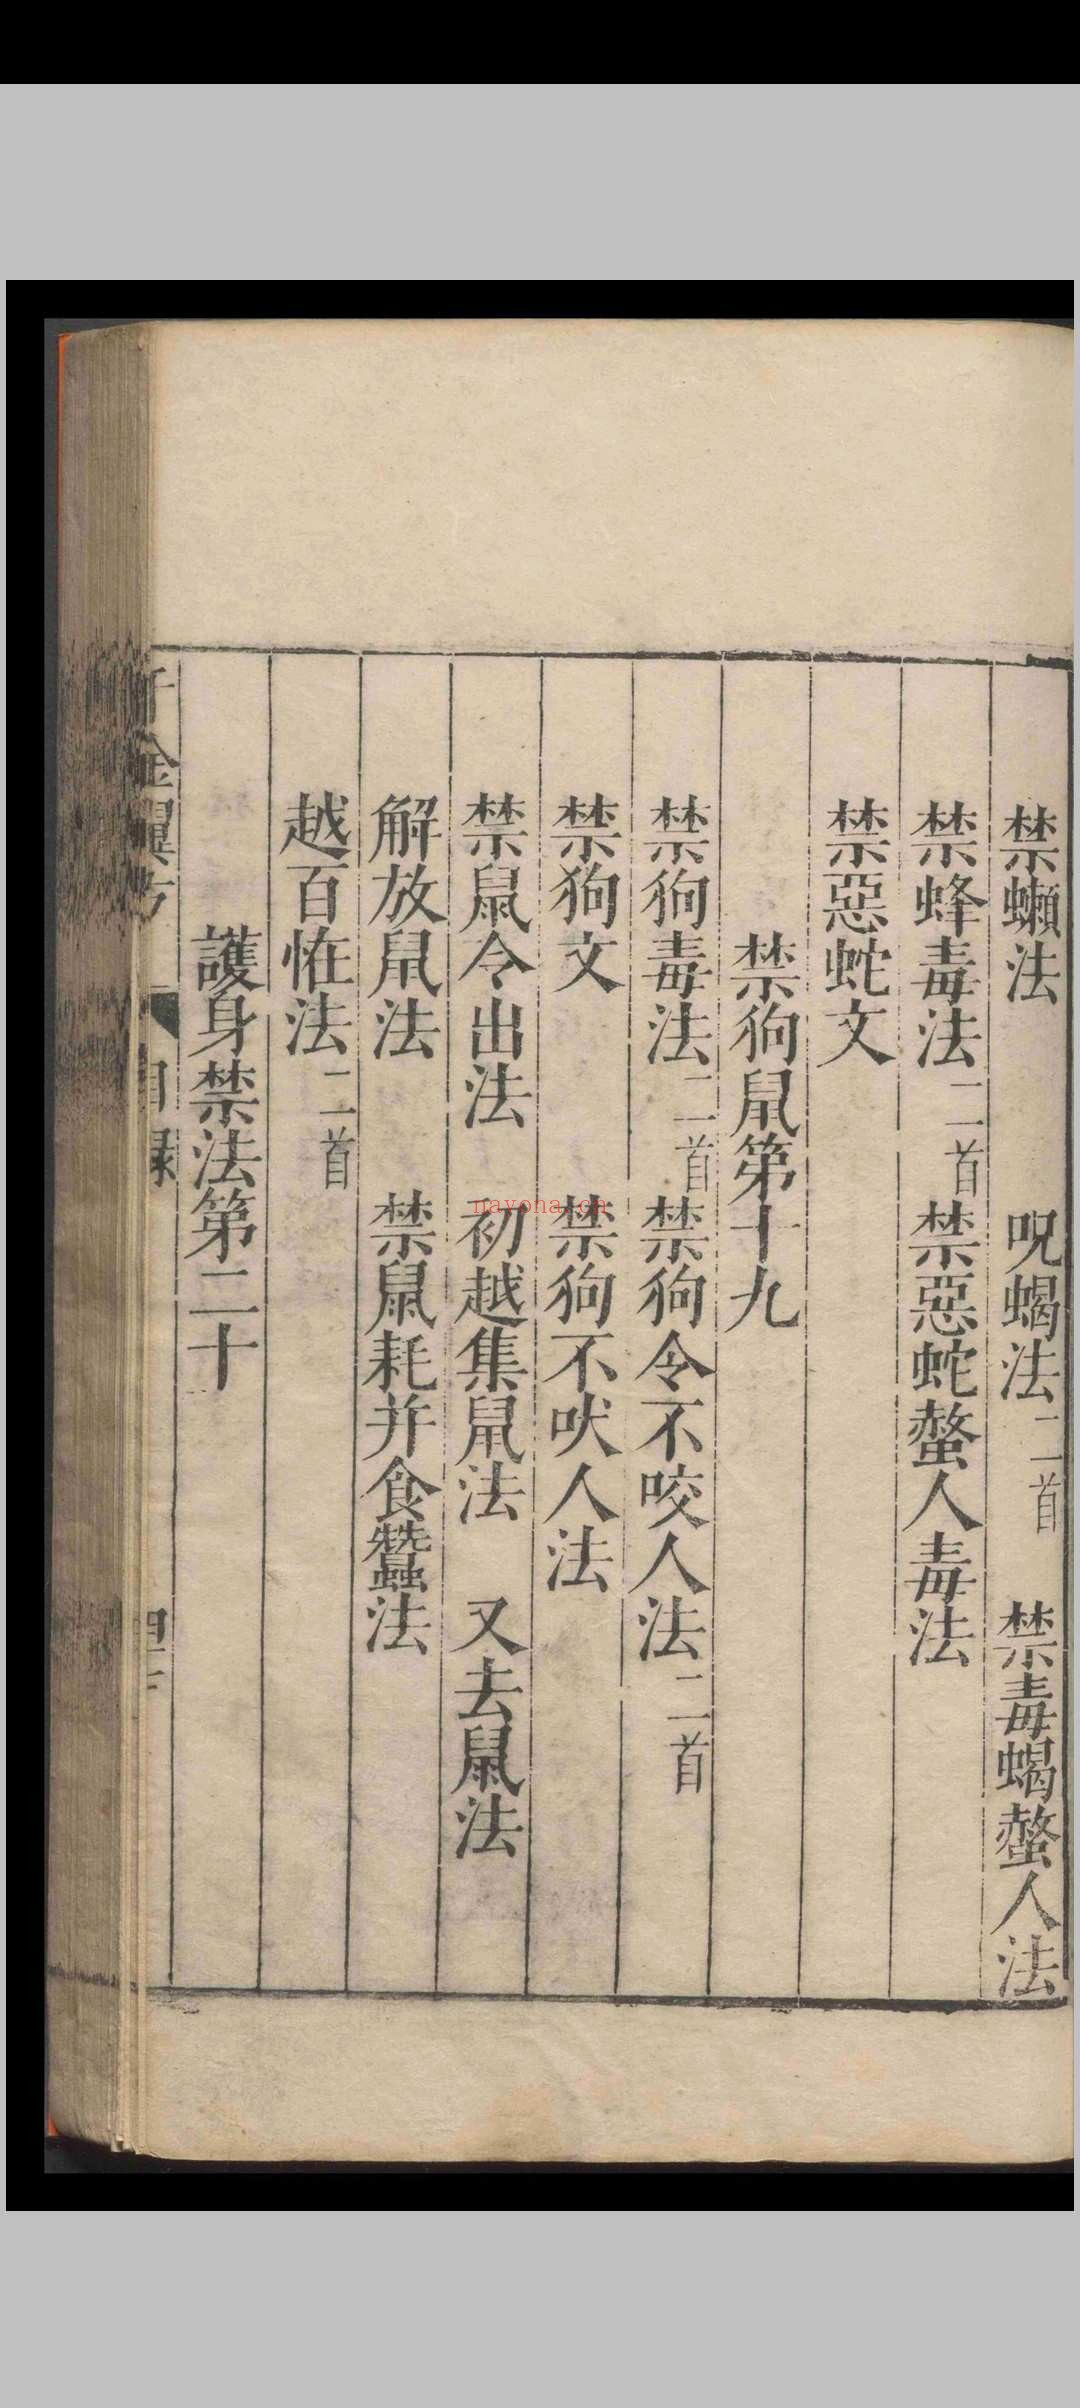 禁蠍法　呪蝎法二首　禁毒蝎螫人法
禁蜂毒法二首　禁惡蛇螫人毒法
禁惡蛇文
禁狗鼠第十九
禁狗毒法二首　禁狗令不咬人法二首
禁狗文　禁狗不吠人法
禁鼠令出法　初越集鼠法　又去鼠法
解放鼠法　禁鼠耗并食蠶法
越百恠法二首
護身禁法第二十
千金翼方　目録
nayona.cn